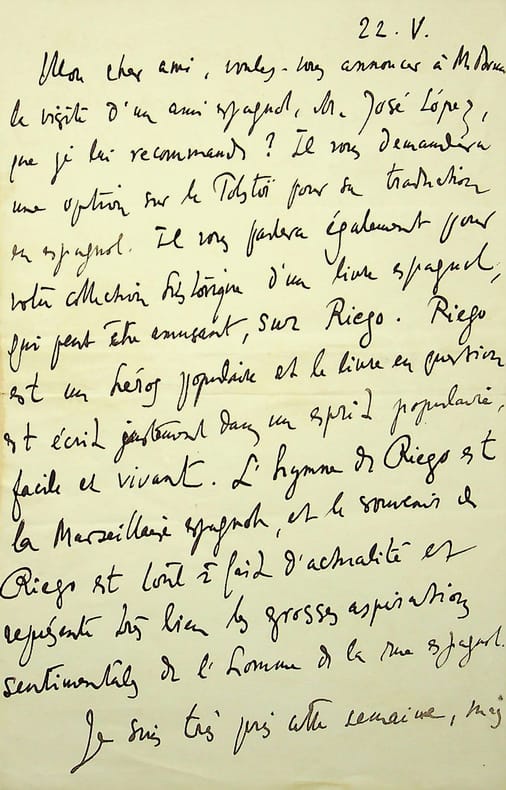 22. V.
Mon cher ami, voulez-vous annoncer à M.
la visite d'un ami espagnol, M. José López,
que je lui recommande ? Il vous demandera
une option sur le Tolstoï pour sa traduction
en espagnol. Il vous parlera également pour
votre collection historique d'un livre espagnol,
qui peut être amusant, sur Riego. Riego
est un héros populaire et le livre en question
est écrit justement dans un esprit populaire,
facile et vivant. L'hymne de Riego est
la Marseillaise espagnole, et le souvenir de
Riego est tout à fait d'actualité et
représente très bien les grosses aspirations
sentimentales de l'homme de la rue espagnol.
Je suis très pris cette semaine, mais